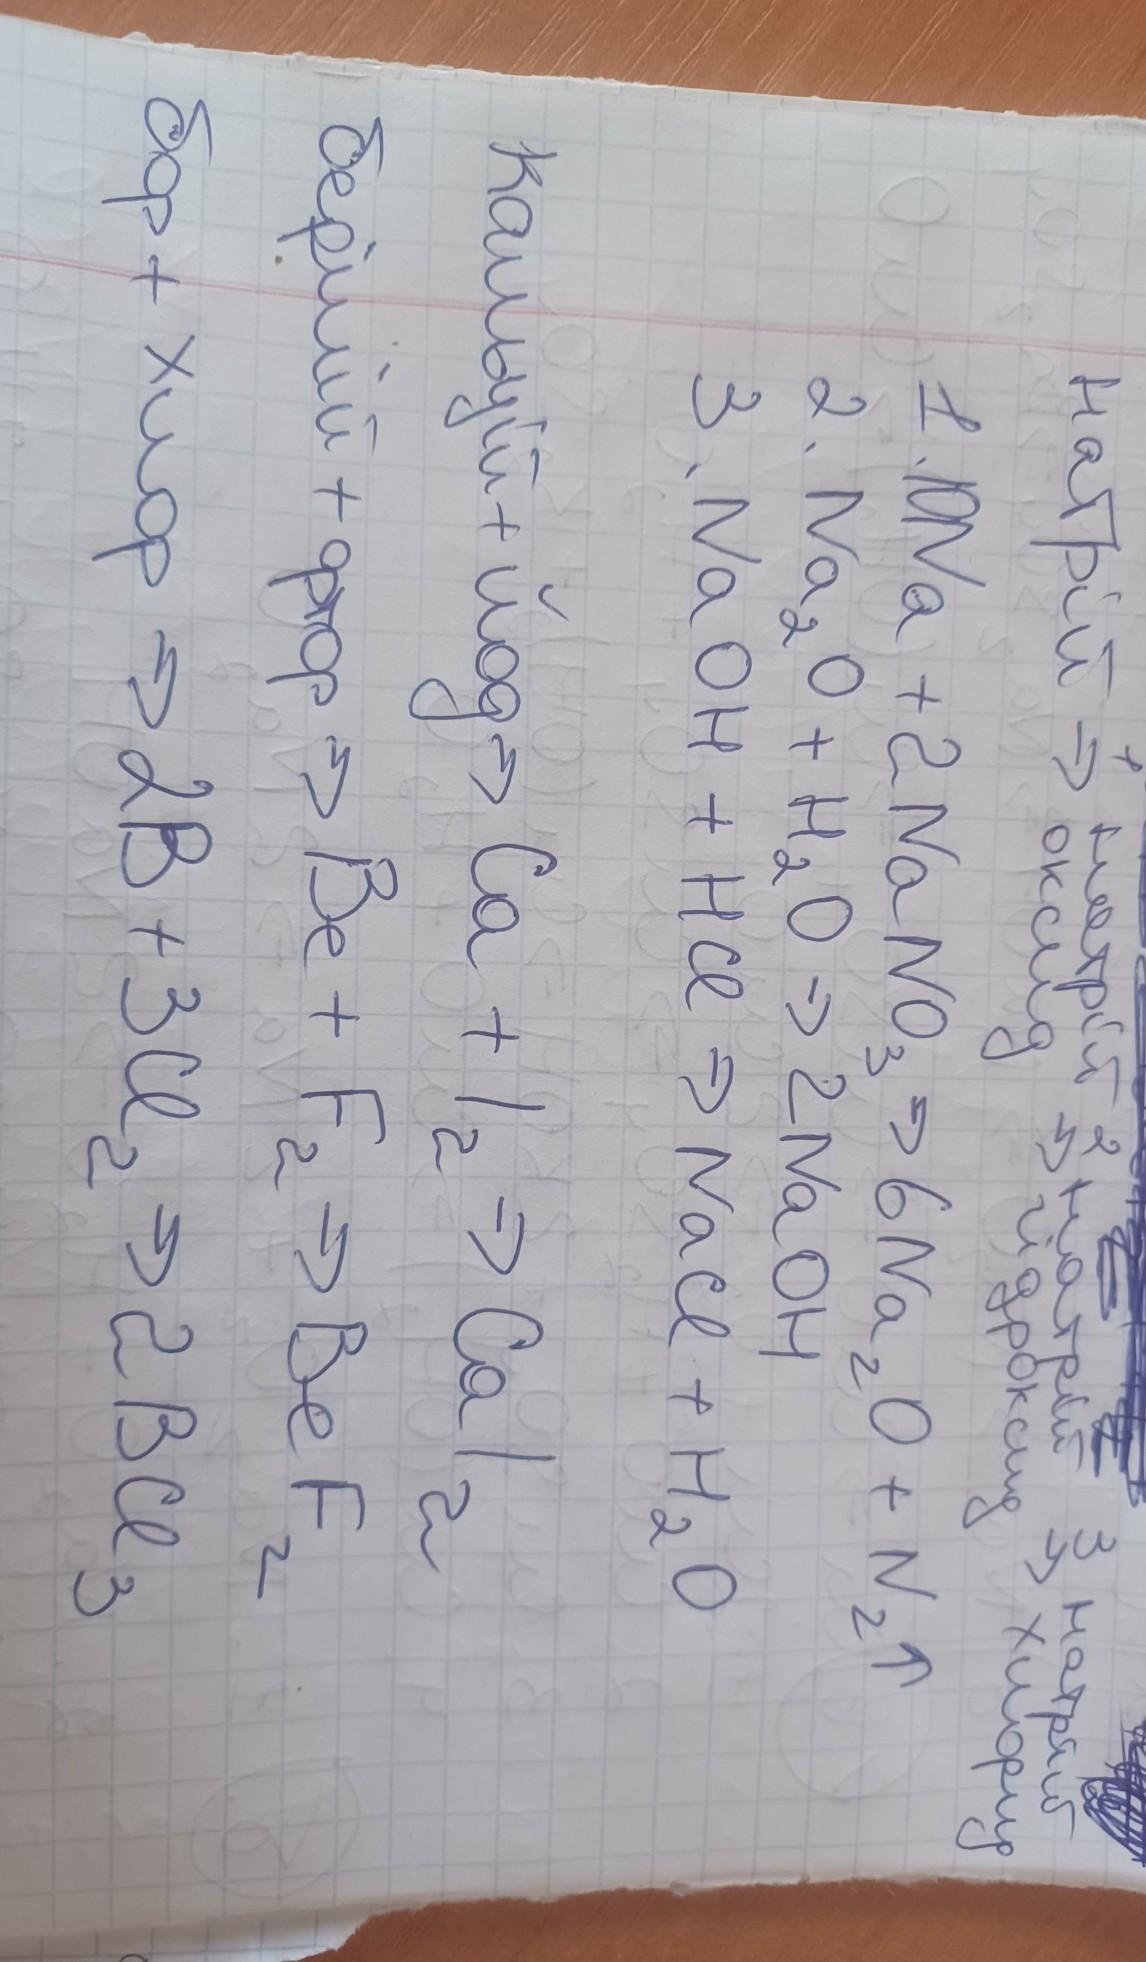 натрій 1→ натрій 2→ натрій 3→ натрій
оксид гідроксид хлорид
1. 10Na + 2NaNO₃ → 6Na₂O + N₂↑
2. Na₂O + H₂O → 2NaOH
3. NaOH + HCl → NaCl + H₂O
Кальцій + йод → Ca + I₂ → CaI₂
берілій + фтор → Be + F₂ → BeF₂
бор + хлор → 2B + 3Cl₂ → 2BCl₃